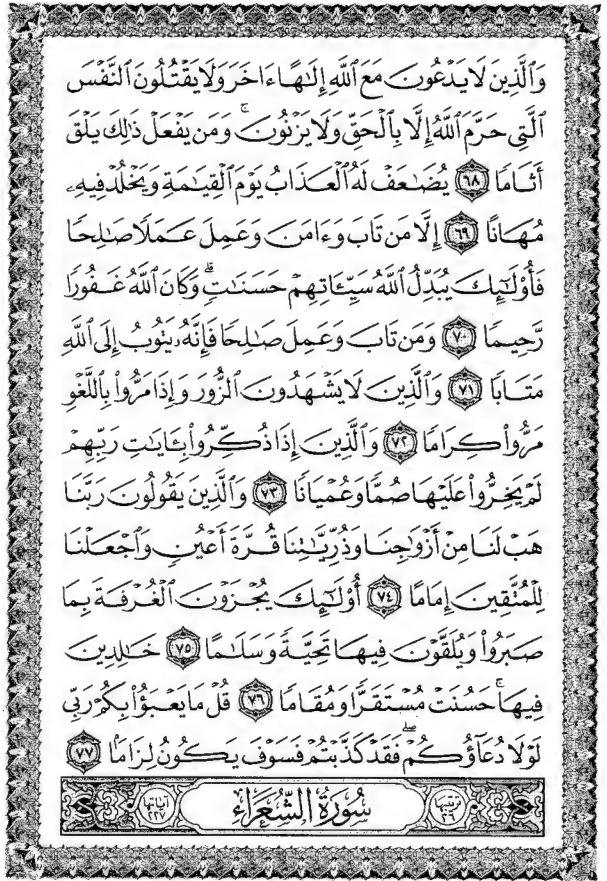 وَٱلَّذِينَ لَا يَدْعُونَ مَعَ ٱللَّهِ إِلَٰهًا ءَاخَرَ وَلَا يَقْتُلُونَ ٱلنَّفْسَ
ٱلَّتِى حَرَّمَ ٱللَّهُ إِلَّا بِٱلْحَقِّ وَلَا يَزْنُونَ ۚ وَمَن يَفْعَلْ ذَٰلِكَ يَلْقَ
أَثَامًا ٦٨ يُضَٰعَفْ لَهُ ٱلْعَذَابُ يَوْمَ ٱلْقِيَٰمَةِ وَيَخْلُدْ فِيهِۦ
مُهَانًا ٦٩ إِلَّا مَن تَابَ وَءَامَنَ وَعَمِلَ عَمَلًا صَٰلِحًا
فَأُو۟لَٰٓئِكَ يُبَدِّلُ ٱللَّهُ سَيِّـَٔاتِهِمْ حَسَنَٰتٍ ۗ وَكَانَ ٱللَّهُ غَفُورًا
رَّحِيمًا ٧٠ وَمَن تَابَ وَعَمِلَ صَٰلِحًا فَإِنَّهُۥ يَتُوبُ إِلَى ٱللَّهِ
مَتَابًا ٧١ وَٱلَّذِينَ لَا يَشْهَدُونَ ٱلزُّورَ وَإِذَا مَرُّوا۟ بِٱللَّغْوِ
مَرُّوا۟ كِرَامًا ٧٢ وَٱلَّذِينَ إِذَا ذُكِّرُوا۟ بِـَٔايَٰتِ رَبِّهِمْ
لَمْ يَخِرُّوا۟ عَلَيْهَا صُمًّا وَعُمْيَانًا ٧٣ وَٱلَّذِينَ يَقُولُونَ رَبَّنَا
هَبْ لَنَا مِنْ أَزْوَٰجِنَا وَذُرِّيَّٰتِنَا قُرَّةَ أَعْيُنٍ وَٱجْعَلْنَا
لِلْمُتَّقِينَ إِمَامًا ٧٤ أُو۟لَٰٓئِكَ يُجْزَوْنَ ٱلْغُرْفَةَ بِمَا
صَبَرُوا۟ وَيُلَقَّوْنَ فِيهَا تَحِيَّةً وَسَلَٰمًا ٧٥ خَٰلِدِينَ
فِيهَا ۚ حَسُنَتْ مُسْتَقَرًّا وَمُقَامًا ٧٦ قُلْ مَا يَعْبَؤُا۟ بِكُمْ رَبِّى
لَوْلَا دُعَآؤُكُمْ ۖ فَقَدْ كَذَّبْتُمْ فَسَوْفَ يَكُونُ لِزَامًۢا ٧٧
ترتيبها ٢٦ سُورَةُ الشُّعَرَاءِ آياتها ٢٢٧